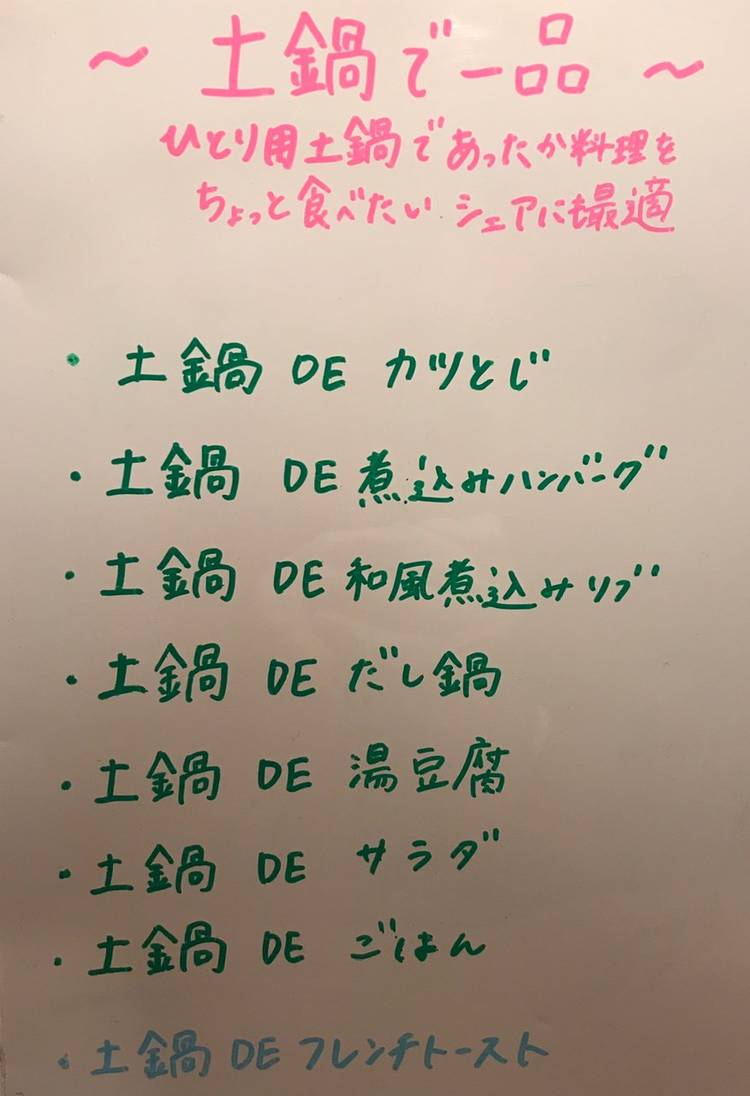 ～ 土鍋で一品 ～
ひとり用土鍋であったか料理を
ちょっと食べたい シェアにも最適
・ 土鍋 DE カツとじ
・ 土鍋 DE 煮込みハンバーグ
・ 土鍋 DE 和風煮込みリブ
・ 土鍋 DE だし鍋
・ 土鍋 DE 湯豆腐
・ 土鍋 DE サラダ
・ 土鍋 DE ごはん
・ 土鍋 DE フレンチトースト